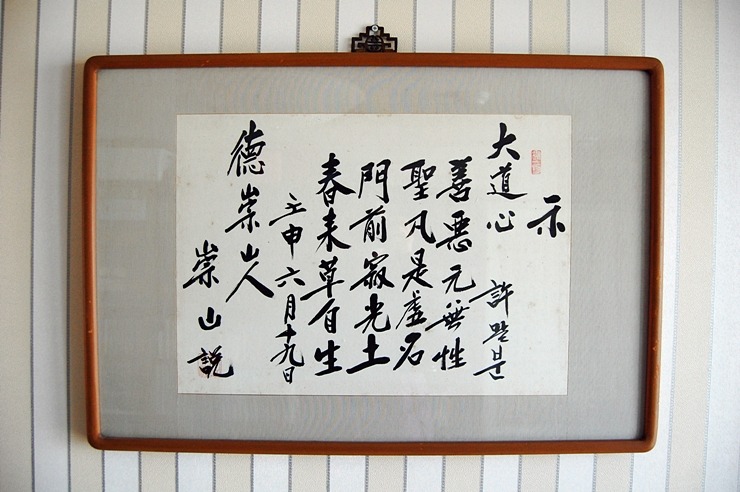 示
大道心 許말분
善惡元無性
聖凡是虛名
門前寂光土
春来草自生
壬申六月十九日
德崇山人
崇山說